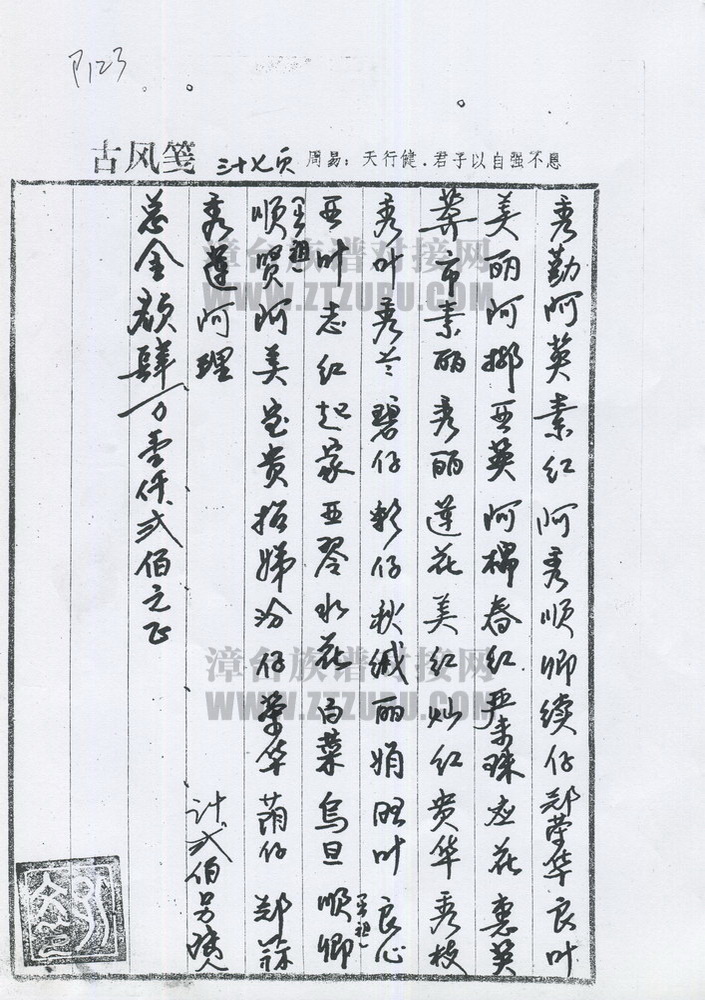 P123
古风笺 三十七页 周易：天行健．君子以自强不息
秀勤 阿英 素红 阿秀 顺卿 续仔 郑荣华 良叶
美丽 阿娜 亚英 阿棉 春红 严未珠 应花 惠英
葬市 素丽 秀丽 莲花 美红 灿红 贵华 秀枝
秀叶 秀兰 碧仔 彩仔 秋绒 丽娟 旺叶 良心
亚叶 志红 起家 亚琴 水花 白菜 乌旦 顺卿
顺贤 阿美 宝贵 招娣 汾仔 荣华 荫仔 郑
秀莲 阿理
计弍佰
总金额肆万壹仟弍佰元正
漳台族谱对接网
WWW.ZTZUPU.COM
漳台族谱对接网
WWW.ZTZUPU.COM